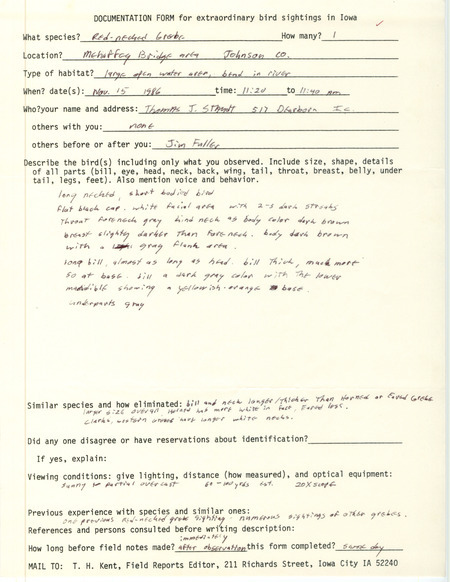 DOCUMENTATION FORM for extraordinary bird sightings in Iowa
What species? Red-necked Grebe How many? 1
Location? Mehaffey Bridge area Johnson Co.
Type of habitat? large open water area, bend in river
When? date(s): Nov. 15 1986 time: 11:20 to 11:40 am
Who? your name and address: Thomas J. 517 Dearborn I.C.
others with you: none
others before or after you: Jim Fuller
Describe the bird(s) including only what you observed. Include size, shape, details
of all parts (bill, eye, head, neck, back, wing, tail, throat, breast, belly, under
tail, legs, feet). Also mention voice and behavior.
long necked, short bodied bird.
flat black cap. white facial area with 2-3 dark streaks
Throat foreneck gray hind neck as body color dark brown
breast slightly darker than foreneck. body dark brown
with a gray flank area.
long bill, almost as long as head. bill thick, much more
so at base. bill a dark gray color with the lower
mandible showing a yellowish-orange base.
underparts gray
Similar species and how eliminated: bill and neck longer/thicker than Horned or Eared Grebe
larger size overall Horned has more white in face, Eared less.
Clarks, western longer white necks.
Did any one disagree or have reservations about identification?
If yes, explain:
Viewing conditions: give lighting, distance (how measured), and optical equipment:
sunny to partial overcast 60-100 yds est. 20X scope
Previous experience with species and similar ones:
one previous Red-necked grebe sighting numerous sightings of other grebes.
References and persons consulted before writing description:
immediately
How long before field notes made? after observation this form completed? same day
MAIL TO: T. H. Kent, Field Reports Editor, 211 Richards Street, Iowa City IA 52240